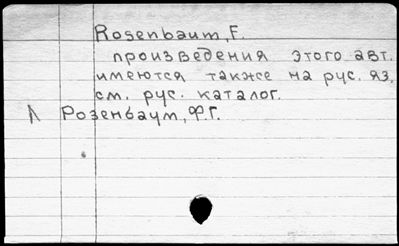 Rosenbaum, F.
произведения этого авт.
имеются также на рус. яз.
см. рус. каталог.
Λ Розенбаум, Ф.Г.